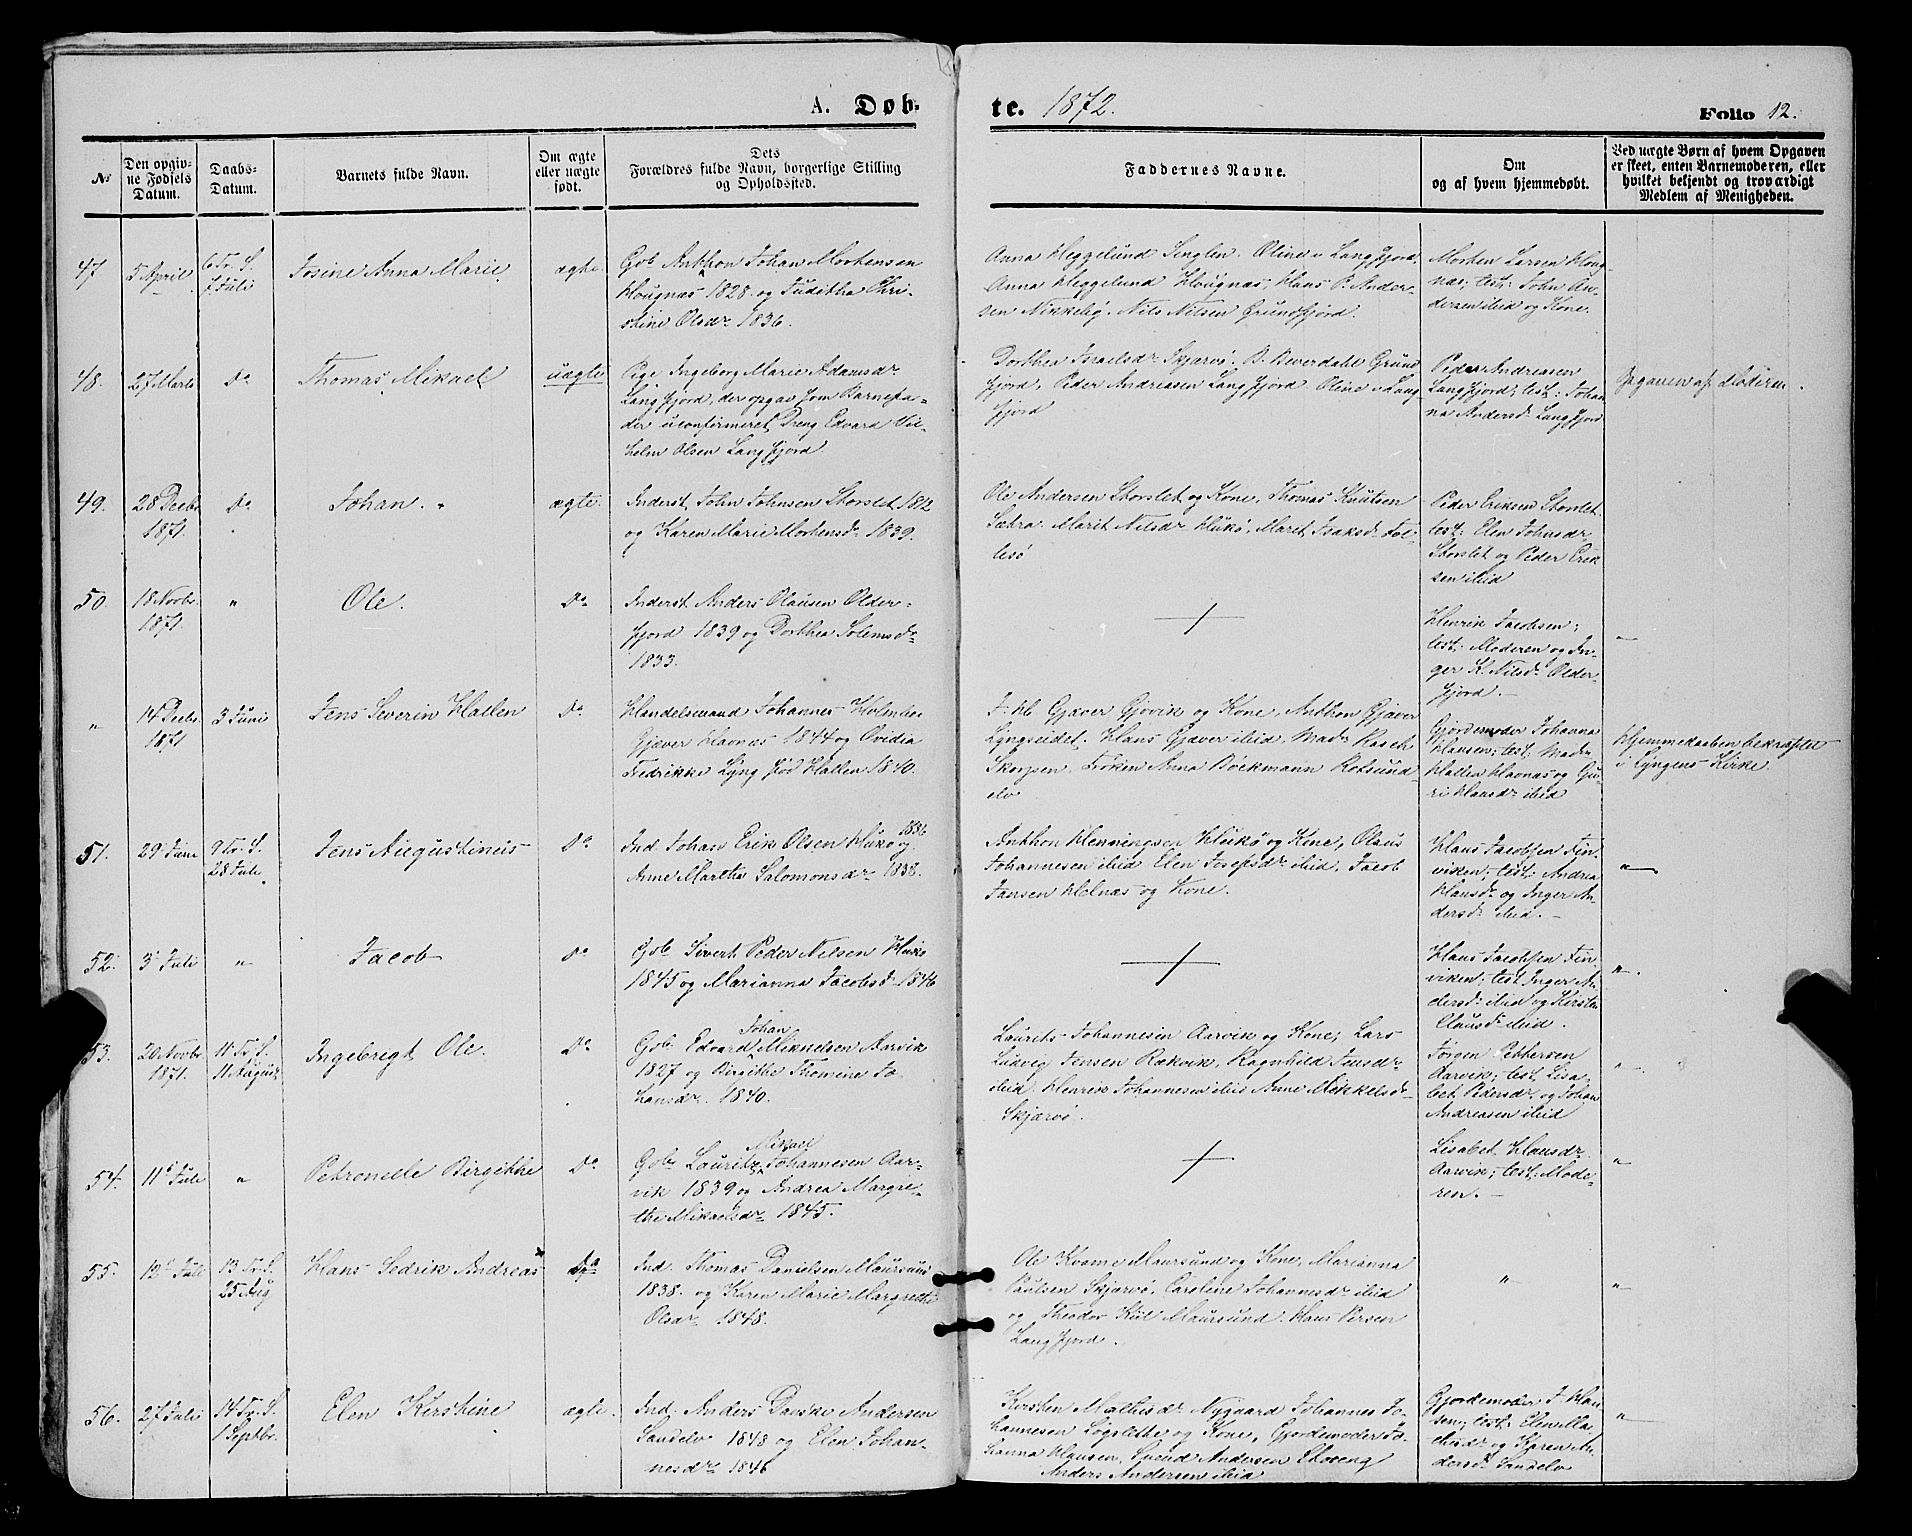 A. Døb-
te. 1872.
Folio 12.
№
Den opgiv-
ne Fødsels
Datum.
Daabs-
Datum.
Barnets fulde Navn.
Om ægte
eller uægte
født.
Dets
Forældres fulde Navn, borgerlige Stilling
og Opholdssted.
Faddernes Navne.
Om
og af hvem hjemmedøbt.
Ved uægte Børn af hvem Opgaven
er skeet, enten Barnemoderen, eller
hvilket bekjendt og troværdigt
Medlem af Menigheden.
47
5 April
6 Tr. S.
7 Juli
Josine Anna Marie
ægte
Gbr Anthon Johan Mortensen
Hougnæs 1828 og Juditha Chri-
stine Olsdr 1836.
Anna Heggelund Singlen. Oline Langfjord,
Anna Heggelund Hougnæs, Hans P. Ander-
sen Nikkeby. Nils Nilsen Grundfjord.
Morten Larsen Houg-
næs; test: John An-
dersen ibid og Kone.
48.
27 Marts
Do
Thomas Mikael
uægte
Pige Ingeborg Marie Adamsdr
Langfjord, der opgav som Barnefa-
der uconfirmeret Dreng Edvard Vil-
helm Olsen Langfjord
Dorthea Israelsdr Skjærvø. B. Beverdahl Grund
fjord, Peder Andreasen Langfjord Oline Lang
fjord
Peder Andreasen
Langfjord; test: Johan
na Andersdr Langfjord
Opgaven af Moderen.
49.
28 Decbr
1871.
Do
Johan.
ægte.
Inderst John Johnsen Storslet 1812
og Karen Marie Mortensdr 1839.
Ole Andersen Storslet og Kone, Thomas Knutsen
Sætra. Marit Nilsdr Hukø, Maret Isaksdr Fol-
lesø
Peder Eriksen Storslet
test: Elen Johnsdr
Storslet og Peder Erik
sen ibid
50.
18 Novbr.
1871.
"
Ole.
Do
Inderst Anders Olausen Older-
fjord 1839 og Dorthea Solemsdr
1833.
Henrik Jacobsen;
test: Moderen og In-
ger K. Nilsdr Older-
fjord.
"
"
14 Decbr.
1871
3 Juni
Jens Severin Hallen
Do
Handelsmand Johannes Holmboe
Gjæver Havnæs 1844 og Ovidia
Fredrikke Lyng fød Hallen 1840.
J. Hb Gjæver Gjøvik og Kone, Anthon Gjæver
Lyngseidet. Hans Gjæver ibid, Madm Rasch
Skorpen. Frøken Anna Bøckmann Rotsund-
elv
Gjordemoder Johanna
Hansen; test: Madm
Hallen Havnæs og Gu-
ri Hansdr ibid
Hjemmedaaben bekræftet
i Lyngens Kirke.
51.
29 Juni
9 Tr. S.
28 Juli
Jens Augustinus
Do
Ind. Johan Erik Olsen Hukø 1836 og
Anne Martha Salomonsdr 1838.
Anthon Henningsen Hukø og Kone, Olaus
Johannesen ibid Elen Josefsdr ibid, Jacob
Jansen Helnæs og Kone.
Hans Jacobsen Fin-
viken; test: Andrea
Hansdr og Inger An-
dersdr ibid.
"
52.
3 Juli
"
Jacob
Do
Gbr Sivert Peder Nilsen Hukø
1845 og Marianna Jacobsdr 1846
Hans Jacobsen Fin-
viken; test Inger An-
dersdr ibid og Kirsten
Clausdr ibid.
"
53.
20 Novbr.
1871.
11 Tr. S.
11 August
Ingebrigt Ole.
Do
Gbr Edvard Johan Mikkelsen Aarvik
1827 og Birgithe Thomine Jo-
hansdr 1840.
Laurits Johannesen Aarvik og Kone, Lars
Ludvig Jensen Rækvik, Ragnhild Jensdr
ibid. Henrik Johannesen ibid Anne Mikkelsdr
Skjærvø.
Jørgen Pettersen
Aarvik; test, Lisa-
bet Pedersdr og Johan
Andreasen ibid
"
54.
11 Juli
"
Petronelle Birgitthe
Do
Gbr Lauritz Mikael Johannesen Aar-
vik 1839 og Andrea Margre-
the Mikaelsdr 1845.
Lisabet Hansdr
Aarvik; test: Mode-
ren.
"
55.
12 Juli
13 Tr. S.
25 Aug
Hans Sedrik Andreas
Do
Ind. Thomas Danielsen Maursund
1838. og Karen Marie Margrethe
Olsdr 1848.
Ole Kvame Maursund og Kone, Marianna
Paulsen Skjærvø, Caroline Johannesdr ibid
og Theodor Kiil Maursund. Hans Persen
Langfjord.
"
"
56.
27 Juli
14 Tr. S.
1 Septbr.
Elen Kirstine
ægte.
Ind. Anders Danske Andersen
Sandelv 1848 og Elen Johan-
nesdr 1846
Kirsten Mathisdr Nygaard Johannes Jo-
hannesen Løgslethe og Kone, Gjordemoder Jo-
hanna Hansen, Svend Andersen Storeng
Anders Andersen ibid
Gjordemoder J. Han
sen; test: Elen Ma-
thisdr og Karen An-
dersdr Sandelv
"